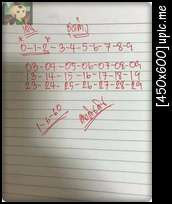 0-1-2-3-4-5-6-7-8-9
03-04-05-06-07-08-09
13-14-15-16-17-18-19
23-24-25-26-27-28-29
1-6-60
[450x600] upic.me